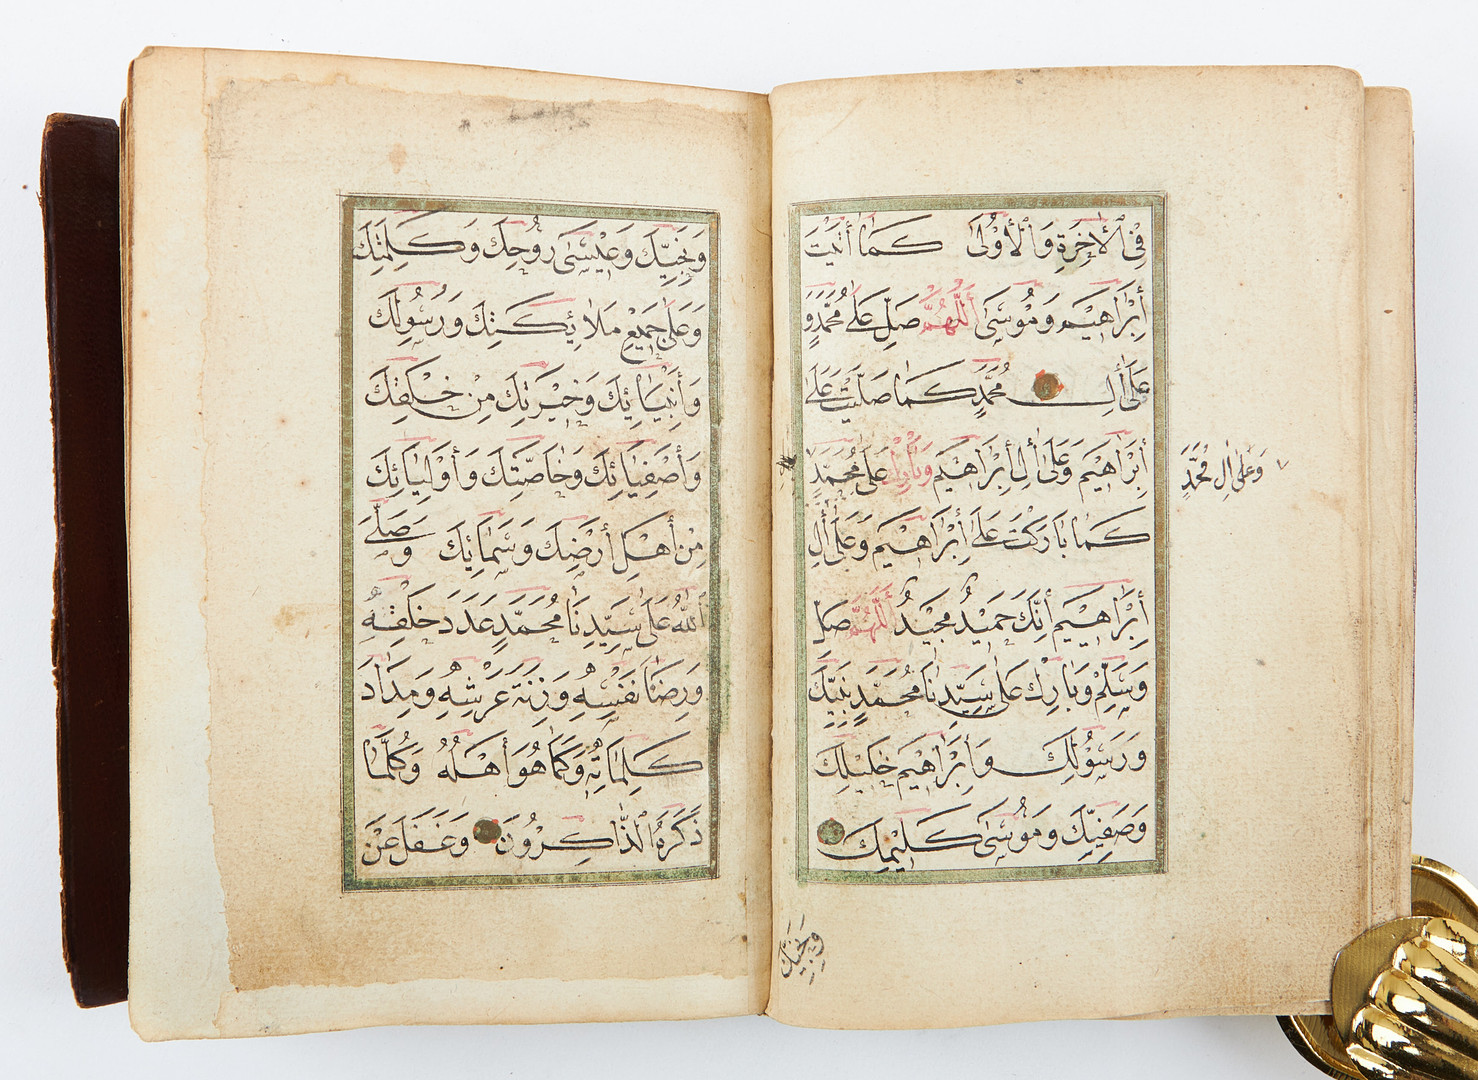 فِي ٱلْأٰخِرَةِ وَٱلْأُوْلَىٰ كَمَا أٰتَيْتَ
إِبْرَاهِيْمَ وَمُوْسَى أَللّٰهُمَّ صَلِّ عَلَى مُحَمَّدٍ وَ
عَلَى أٰلِ مُحَمَّدٍ كَمَا صَلَّيْتَ عَلَى
إِبْرَاهِيْمَ وَعَلَى أٰلِ إِبْرَاهِيْمَ وَبَارِكْ عَلَى مُحَمَّدٍ
وَعَلَى اٰلِ مُحَمَّدٍ
كَمَا بَارَكْتَ عَلَى إِبْرَاهِيْمَ وَعَلَى أٰلِ
إِبْرَاهِيْمَ إِنَّكَ حَمِيْدٌ مَجِيْدٌ أَللّٰهُمَّ صَلِّ
وَسَلِّمْ وَبَارِكْ عَلَى سَيِّدِنَا مُحَمَّدٍ نَبِيِّكَ
وَرَسُوْلِكَ وَإِبْرَاهِيْمَ خَلِيْلِكَ
وَصَفِيِّكَ وَمُوْسَىٰ كَلِيْمِكَ
وَنَجِيِّكَ
وَنَجِيِّكَ وَعِيْسَىٰ رُوْحِكَ وَكَلِمَتِكَ
وَعَلَى جَمِيْعِ مَلَائِكَتِكَ وَرُسُوْلِكَ
وَأَنْبِيَائِكَ وَخِيْرَتِكَ مِنْ خَلْقِكَ
وَأَصْفِيَائِكَ وَخَاصَّتِكَ وَأَوْلِيَائِكَ
مِنْ أَهْلِ أَرْضِكَ وَسَمَائِكَ وَصَلَّى
ٱللّٰهُ عَلَى سَيِّدِنَا مُحَمَّدٍ عَدَدَ خَلْقِهِ
وَرِضَا نَفْسِهِ وَزِنَةَ عَرْشِهِ وَمِدَادَ
كَلِمَاتِهِ وَكَمَا هُوَ أَهْلُهُ وَكُلَّمَا
ذَكَرَهُ ٱلذَّاكِرُوْنَ وَغَفَلَ عَنْ